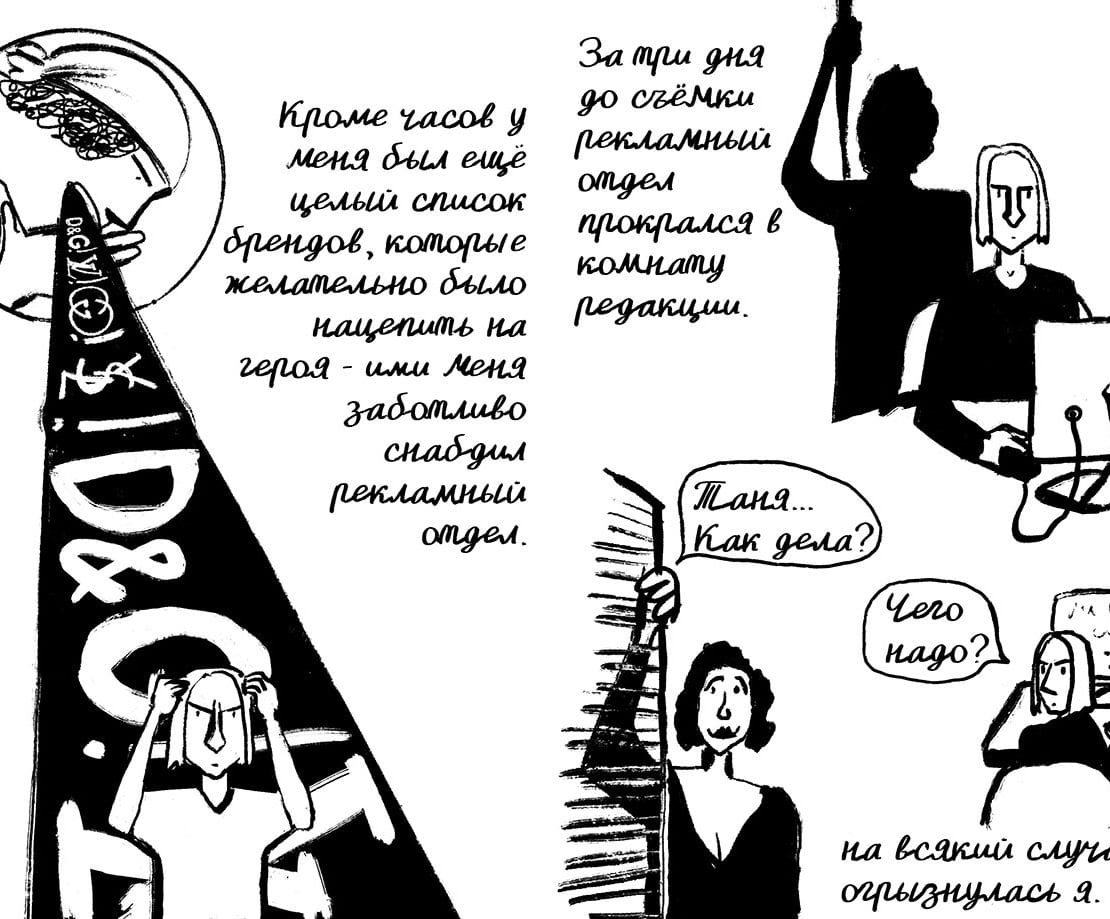 Кроме часов у
меня был ещё
целый список
брендов, которые
желательно было
нацепить на
героя - ими меня
заботливо
снабдил
рекламный
отдел.
D&G!
D&G.
За три дня
до съёмки
рекламный
отдел
прокрался в
комнату
редакции.
Таня...
Как дела?
Чего
надо?
на всякий
огрызнулась я.